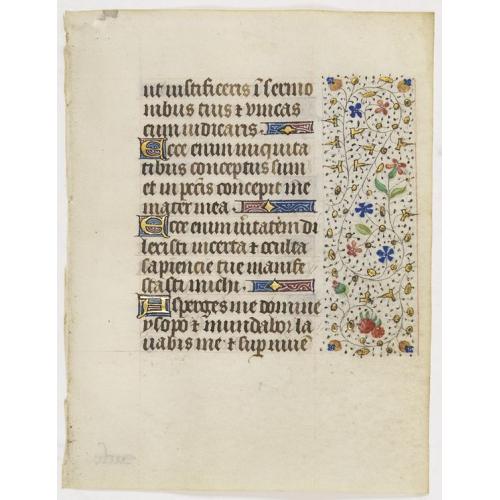 ut iustificeris ī sermo
nibus tuis ⁊ vincas
cum iudicaris.
Ecce enim iniquita
tibus conceptus sum
et in pctīs concepit me
mater mea.
Ecce enim vītatem di
lexisti incerta ⁊ occulta
sapiencie tue manife
stasti michi.
Asperges me domine
ysopo ⁊ mundabor la
vabis me ⁊ super nivē